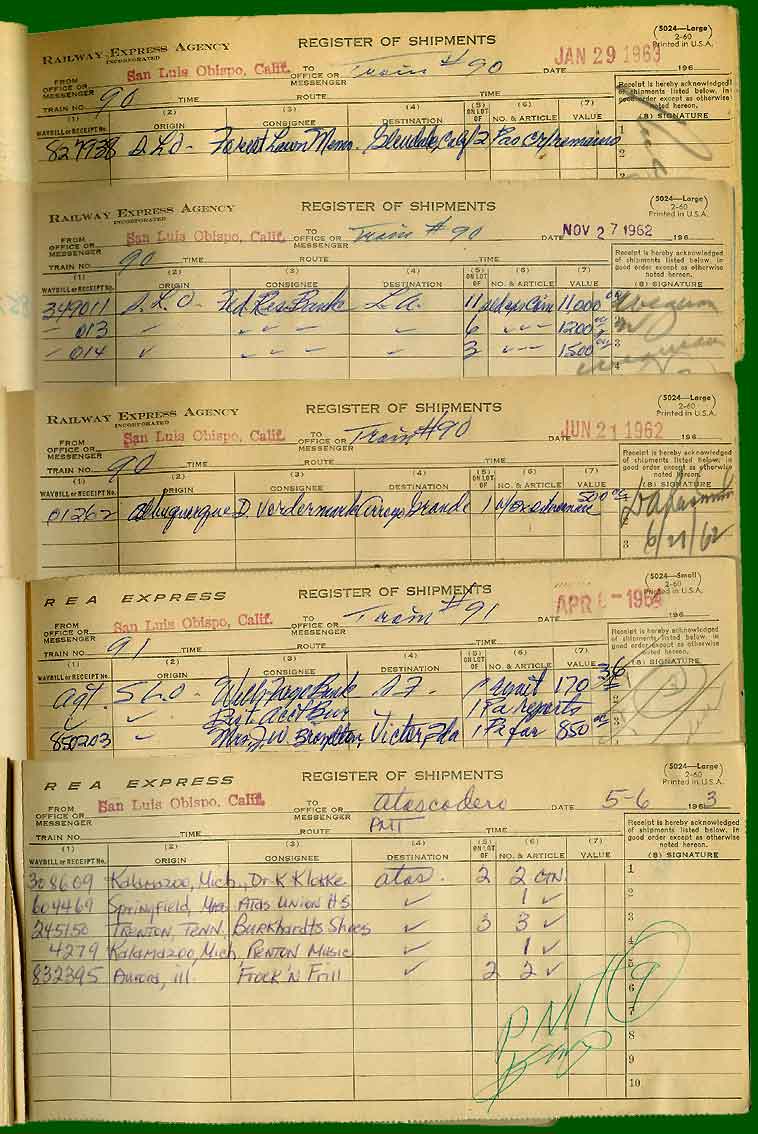 RAILWAY EXPRESS AGENCY REGISTER OF SHIPMENTS (5024—Large)
INCORPORATED 2-60
JAN 29 1963 Printed in U.S.A.
FROM OFFICE OR MESSENGER San Luis Obispo, Calif. TO OFFICE OR MESSENGER Train #90 DATE 196
TRAIN NO. 90 TIME ROUTE TIME Receipt is hereby acknowledged of shipments listed below, in good order except as otherwise noted hereon.
(1) (2) (3) (4) (5) (6) (7)
WAYBILL or RECEIPT No. ORIGIN CONSIGNEE DESTINATION ON LOT OF NO. & ARTICLE VALUE (8) SIGNATURE
827938 S.L.O- Forest Lawn Mem. Glendale, Calif 2 Pac Cr/remains
1
2
3
RAILWAY EXPRESS AGENCY REGISTER OF SHIPMENTS (5024—Large)
INCORPORATED 2-60
Printed in U.S.A.
FROM OFFICE OR MESSENGER San Luis Obispo, Calif. TO OFFICE OR MESSENGER Train #90 DATE NOV 27 1962 196
TRAIN NO. 90 TIME ROUTE TIME Receipt is hereby acknowledged of shipments listed below, in good order except as otherwise noted hereon.
(1) (2) (3) (4) (5) (6) (7)
WAYBILL or RECEIPT No. ORIGIN CONSIGNEE DESTINATION ON LOT OF NO. & ARTICLE VALUE (8) SIGNATURE
349011 S.L.O- Fed. Res. Bank L.A. 11 11,000 00
- 013 ✓ ✓ ✓ ✓ ✓ 6 1200 00
- 014 ✓ ✓ ✓ ✓ ✓ 3 1500 00 3
4
RAILWAY EXPRESS AGENCY REGISTER OF SHIPMENTS (5024—Large)
INCORPORATED 2-60
Printed in U.S.A.
FROM OFFICE OR MESSENGER San Luis Obispo, Calif. TO OFFICE OR MESSENGER Train #90 DATE JUN 21 1962 196
TRAIN NO. 90 TIME ROUTE TIME Receipt is hereby acknowledged of shipments listed below, in good order except as otherwise noted hereon.
(1) (2) (3) (4) (5) (6) (7)
WAYBILL or RECEIPT No. ORIGIN CONSIGNEE DESTINATION ON LOT OF NO. & ARTICLE VALUE (8) SIGNATURE
01262 Albuquerque D. Vordermark Arroyo Grande 1 500 00
3 6/21/62
REA EXPRESS REGISTER OF SHIPMENTS (5024—Small)
2-60
APR 1964 Printed in U.S.A.
FROM OFFICE OR MESSENGER San Luis Obispo, Calif. TO OFFICE OR MESSENGER Train #91 196
TRAIN NO. 91 TIME ROUTE TIME Receipt is hereby acknowledged of shipments listed below, in good order except as otherwise noted hereon.
(1) (2) (3) (4) (5) (6) (7)
WAYBILL or RECEIPT No. ORIGIN CONSIGNEE DESTINATION ON LOT OF NO. & ARTICLE VALUE (8) SIGNATURE
Agt. SLO- Wells Fargo Bank S.F. - 1 remit 170 36
✓ ✓ Dist. Acct Bur ✓ 1 Pa reports
850203 ✓ Mrs. J.W. Victor, Ida 1 Pc fur 850 00
REA EXPRESS REGISTER OF SHIPMENTS (5024—Large)
2-60
Printed in U.S.A.
FROM OFFICE OR MESSENGER San Luis Obispo, Calif. TO OFFICE OR MESSENGER Atascadero DATE 5-6 1963
TRAIN NO. TIME ROUTE PMT TIME Receipt is hereby acknowledged of shipments listed below, in good order except as otherwise noted hereon.
(1) (2) (3) (4) (5) (6) (7)
WAYBILL or RECEIPT No. ORIGIN CONSIGNEE DESTINATION ON LOT OF NO. & ARTICLE VALUE (8) SIGNATURE
308609 Kalamazoo, Mich., Dr. K Klokke atas. 2 2 CTN. 1
604469 Springfield, Mass Atas Union HS ✓ 1 ✓ 2
245150 Trenton, Tenn. Burkhardts Shoes ✓ 3 3 ✓ 3
4279 Kalamazoo, Mich Renton Music ✓ 1 ✓ 4
832395 Aurora, ill. 'Frock 'N Frill ✓ 2 2 ✓ 5
6
7
PMT 8
9
10